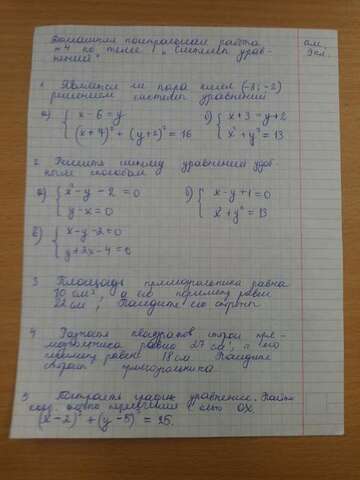 Домашняя контрольная работа
№4 по теме: „Системы урав-
нений"
ам.
9кл.
1 Является ли пара чисел (-3; -2)
решением системы уравнений
а) { x - 6 = y
(x + 4)² + (y + 2)² = 16
б) { x + 3 = y + 2
x² + y² = 13
2. Решите систему уравнений удоб-
ным способом
а) { x² - y - 2 = 0
y - x = 0
б) { x - y + 1 = 0
x² + y² = 13
в) { x - y - 2 = 0
y + 2x - 4 = 0
3 Площадь прямоугольника равна
30 см², а его периметр равен
22 см, Найдите его стороны
4 Разность квадратов сторон пря-
моугольника равна 27 см, а его
периметр равен 18 см Найдите
стороны прямоугольника.
5 Постройте график уравнения. Найти
коор. точки пересечения с осью OX.
(x - 2)² + (y - 5)² = 25.